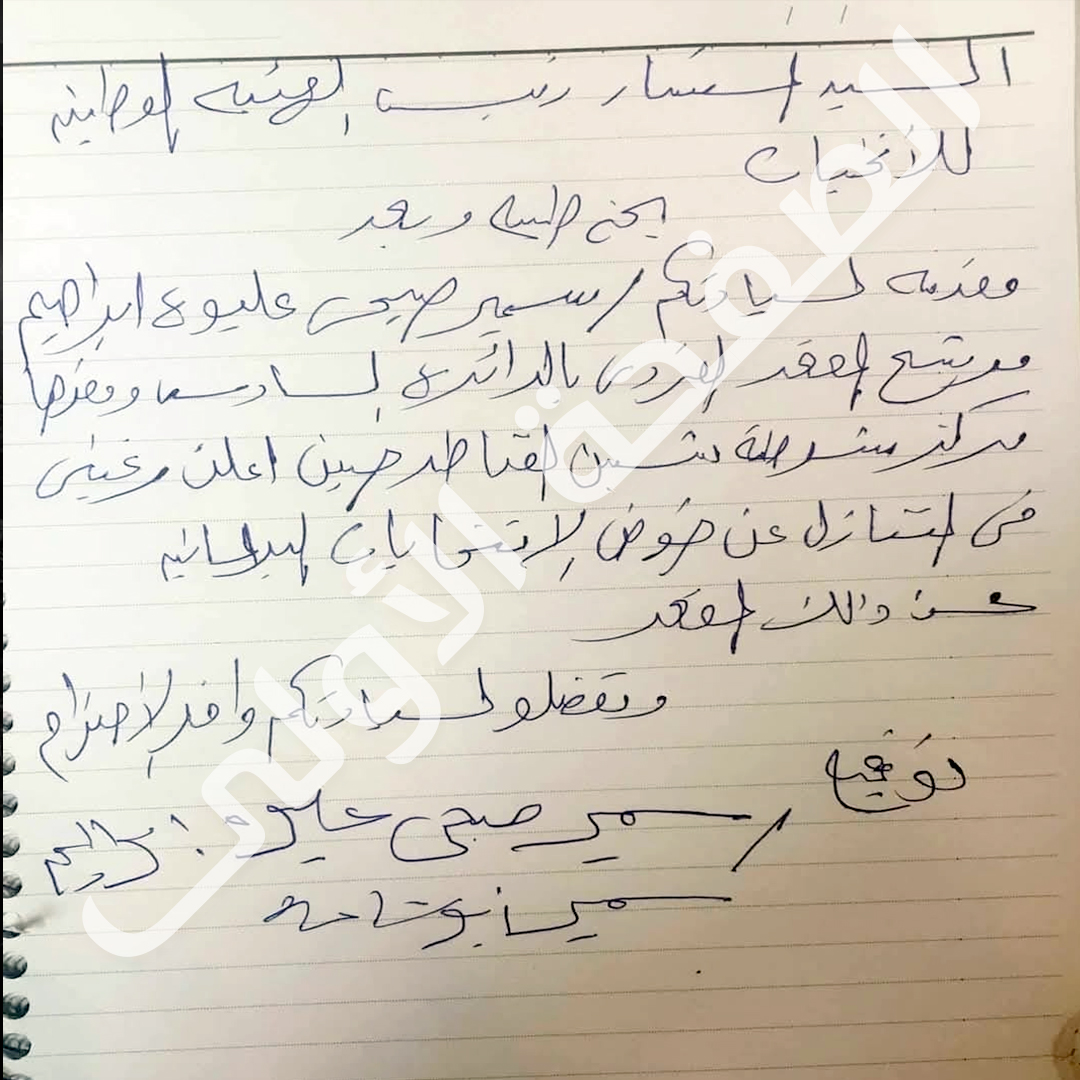 السيد المستشار رئيس الهيئه الوطنيه
للأنتخبات
تحيه طيبه وبعد
مقدمه لسيادتكم / سمير صبحى عليوه ابراهيم
مرشح المقعد الفردى بالدائره السادسه ومقرها
مركز شرطة شبين القناطر حيث اعلن رغبتى
فى التنازل عن خوض الانتخابات البرلمانيه
عن ذالك المقعد
وتفضلو لسيادتكم وافر الاحترام
توقيع
/ سمير صبحى عليوه ابراهيم
سمير ابوشاحه
الصفحة الأولى